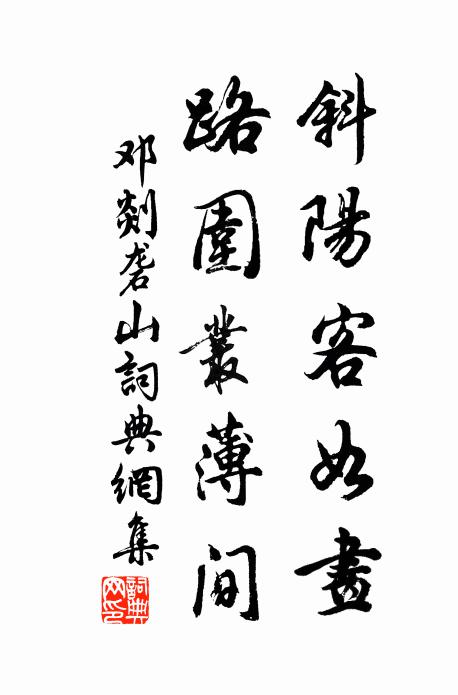 斜陽客如畫
路圍叢薄間
邓剡砻山詞典網集
詞典网印